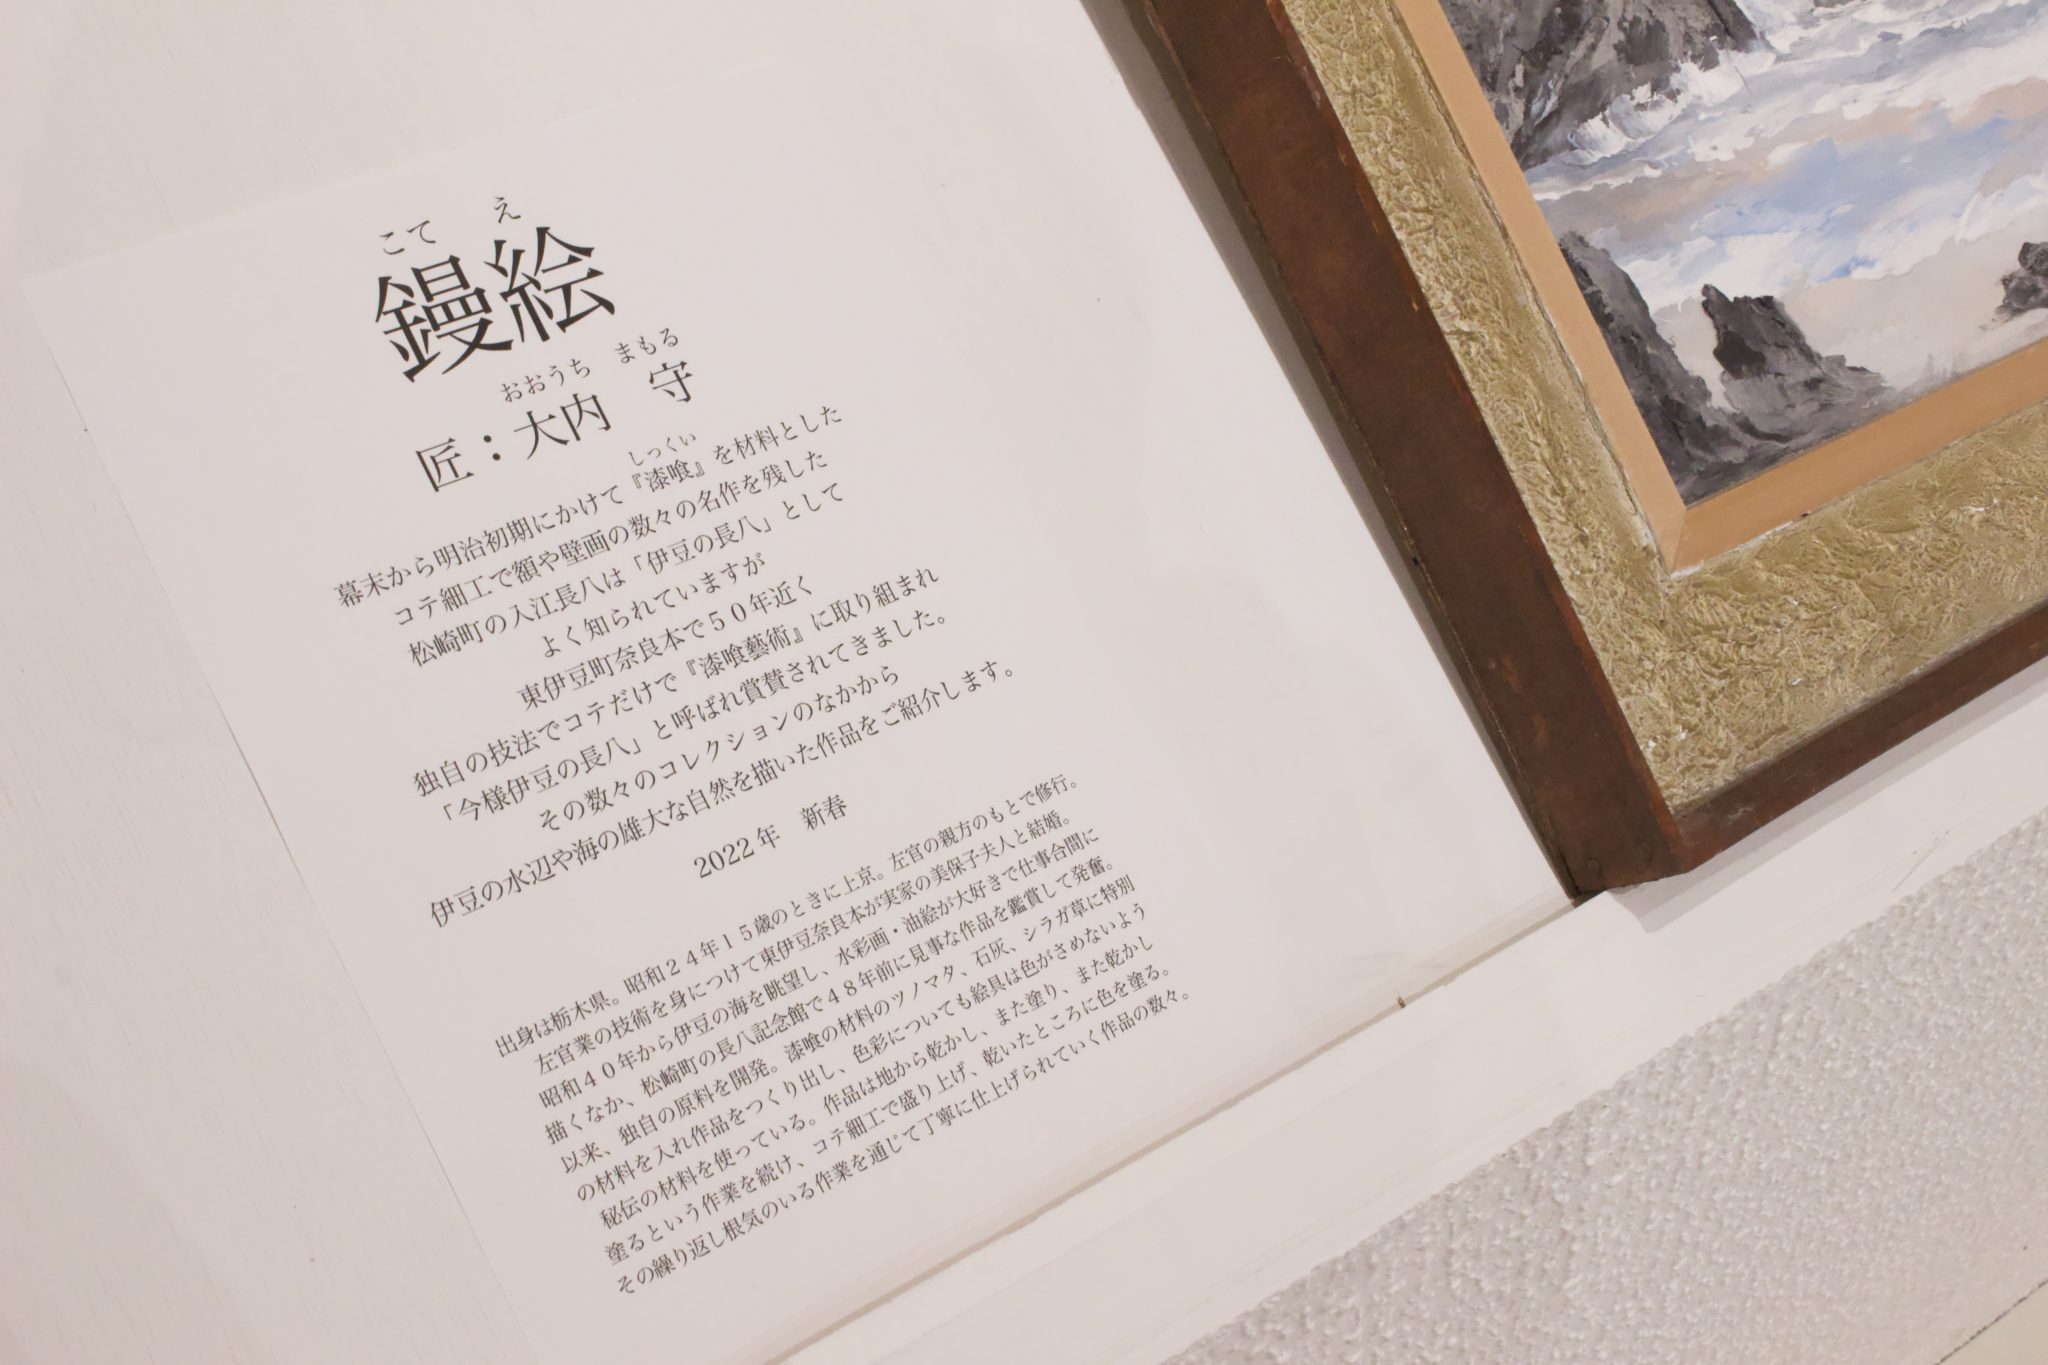 こてえ
鏝絵
おおうち まもる
匠：大内 守
しっくい
幕末から明治初期にかけて『漆喰』を材料とした
コテ細工で額や壁画の数々の名作を残した
松崎町の入江長八は「伊豆の長八」として
よく知られていますが
東伊豆町奈良本で５０年近く
独自の技法でコテだけで『漆喰藝術』に取り組まれ
「今様伊豆の長八」と呼ばれ賞賛されてきました。
その数々のコレクションのなかから
伊豆の水辺や海の雄大な自然を描いた作品をご紹介します。
2022年 新春
出身は栃木県。昭和２４年１５歳のときに上京。左官の親方のもとで修行。
左官業の技術を身につけて東伊豆奈良本が実家の美保子夫人と結婚。
昭和４０年から伊豆の海を眺望し、水彩画・油絵が大好きで仕事合間に
描くなか、松崎町の長八記念館で４８年前に見事な作品を鑑賞して発奮。
以来、独自の原料を開発。漆喰の材料のツノマタ、石灰、シラガ草に特別
の材料を入れ作品をつくり出し、色彩についても絵具は色がさめないよう
秘伝の材料を使っている。作品は地から乾かし、また塗り、また乾かし
塗るという作業を続け、コテ細工で盛り上げ、乾いたところに色を塗る。
その繰り返し根気のいる作業を通じて丁寧に仕上げられていく作品の数々。